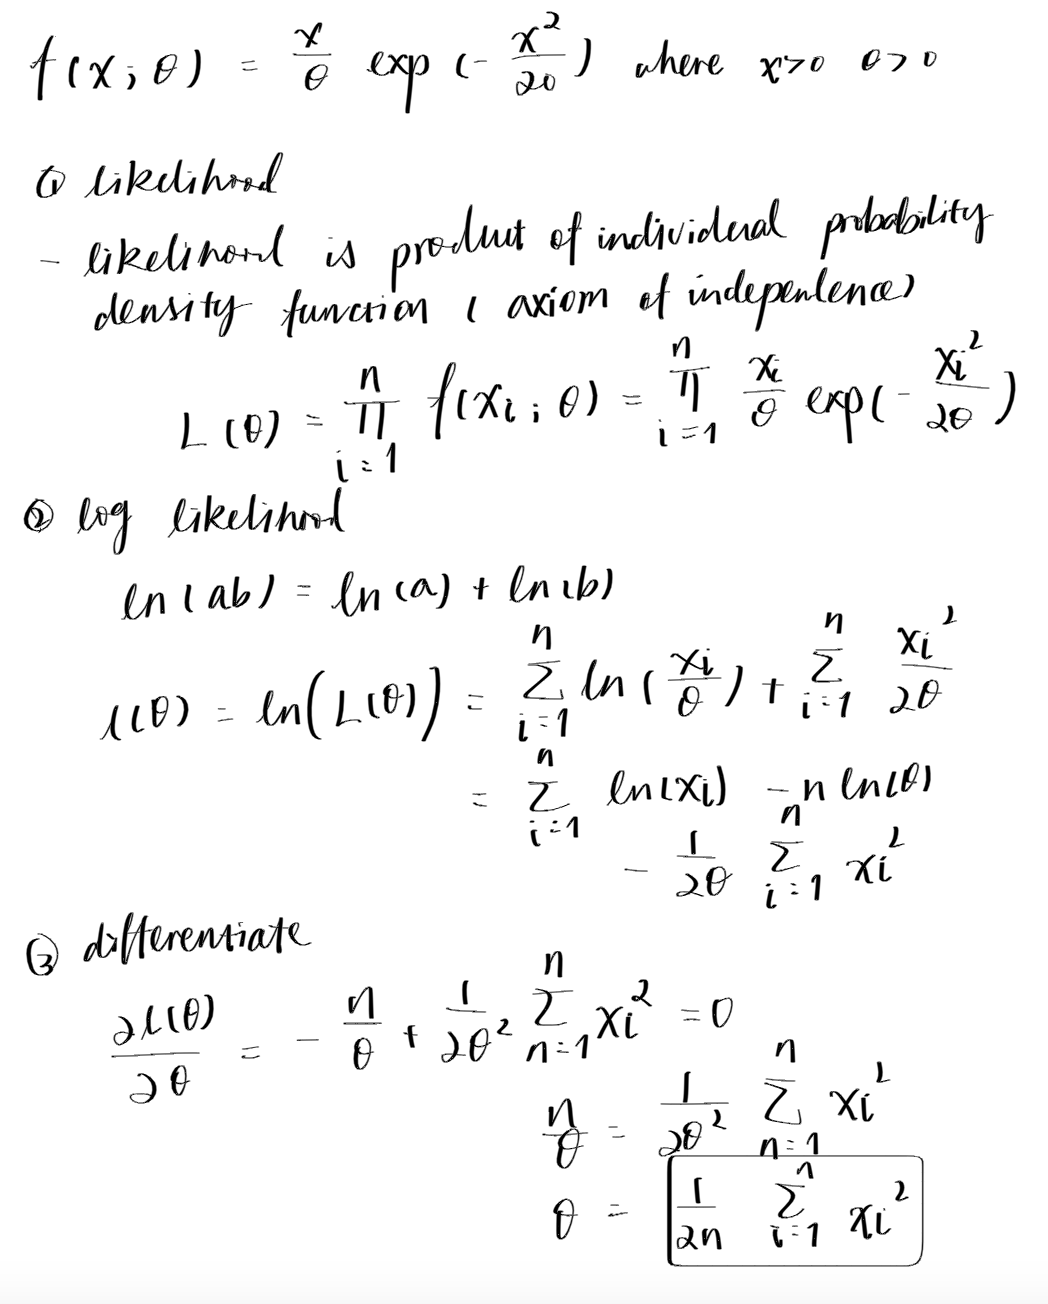 f(x; θ) = x/θ exp (- x²/2θ) where x>0 θ>0
① likelihood
- likelihood is product of individual probability
density function ( axiom of independence)
L(θ) = ∏_{i=1}^{n} f(xi; θ) = ∏_{i=1}^{n} xi/θ exp(- xi²/2θ)
② log likelihood
ln(ab) = ln(a) + ln(b)
l(θ) = ln(L(θ)) = Σ_{i=1}^{n} ln(xi/θ) + Σ_{i=1}^{n} xi²/2θ
= Σ_{i=1}^{n} ln(xi) - n ln(θ)
- 1/2θ Σ_{i=1}^{n} xi²
③ differentiate
∂l(θ)/∂θ = - n/θ + 1/2θ² Σ_{n=1}^{n} xi² = 0
n/θ = 1/2θ² Σ_{n=1}^{n} xi²
θ = 1/2n Σ_{i=1}^{n} xi²